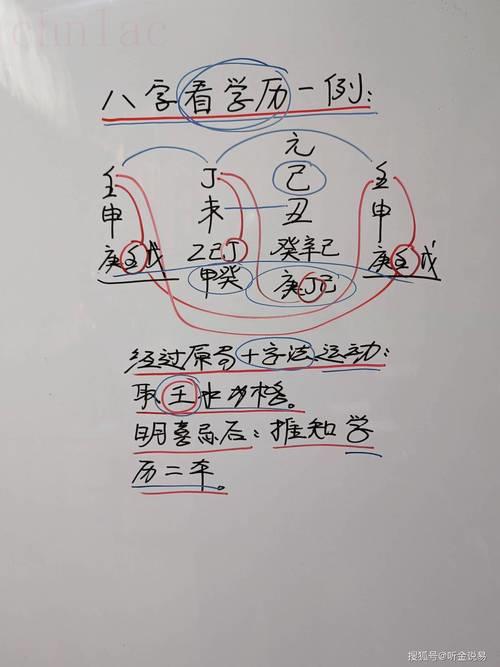 chnlac
八字看学历一例:
元
壬 丁 己 壬
申 未 丑 申
庚壬戊 乙己丁 癸辛己 庚壬戊
甲癸 庚丁己
经过原局十字法运动:
取壬水为格。
明喜忌后:推知学
历二本。
搜狐号@听金说易